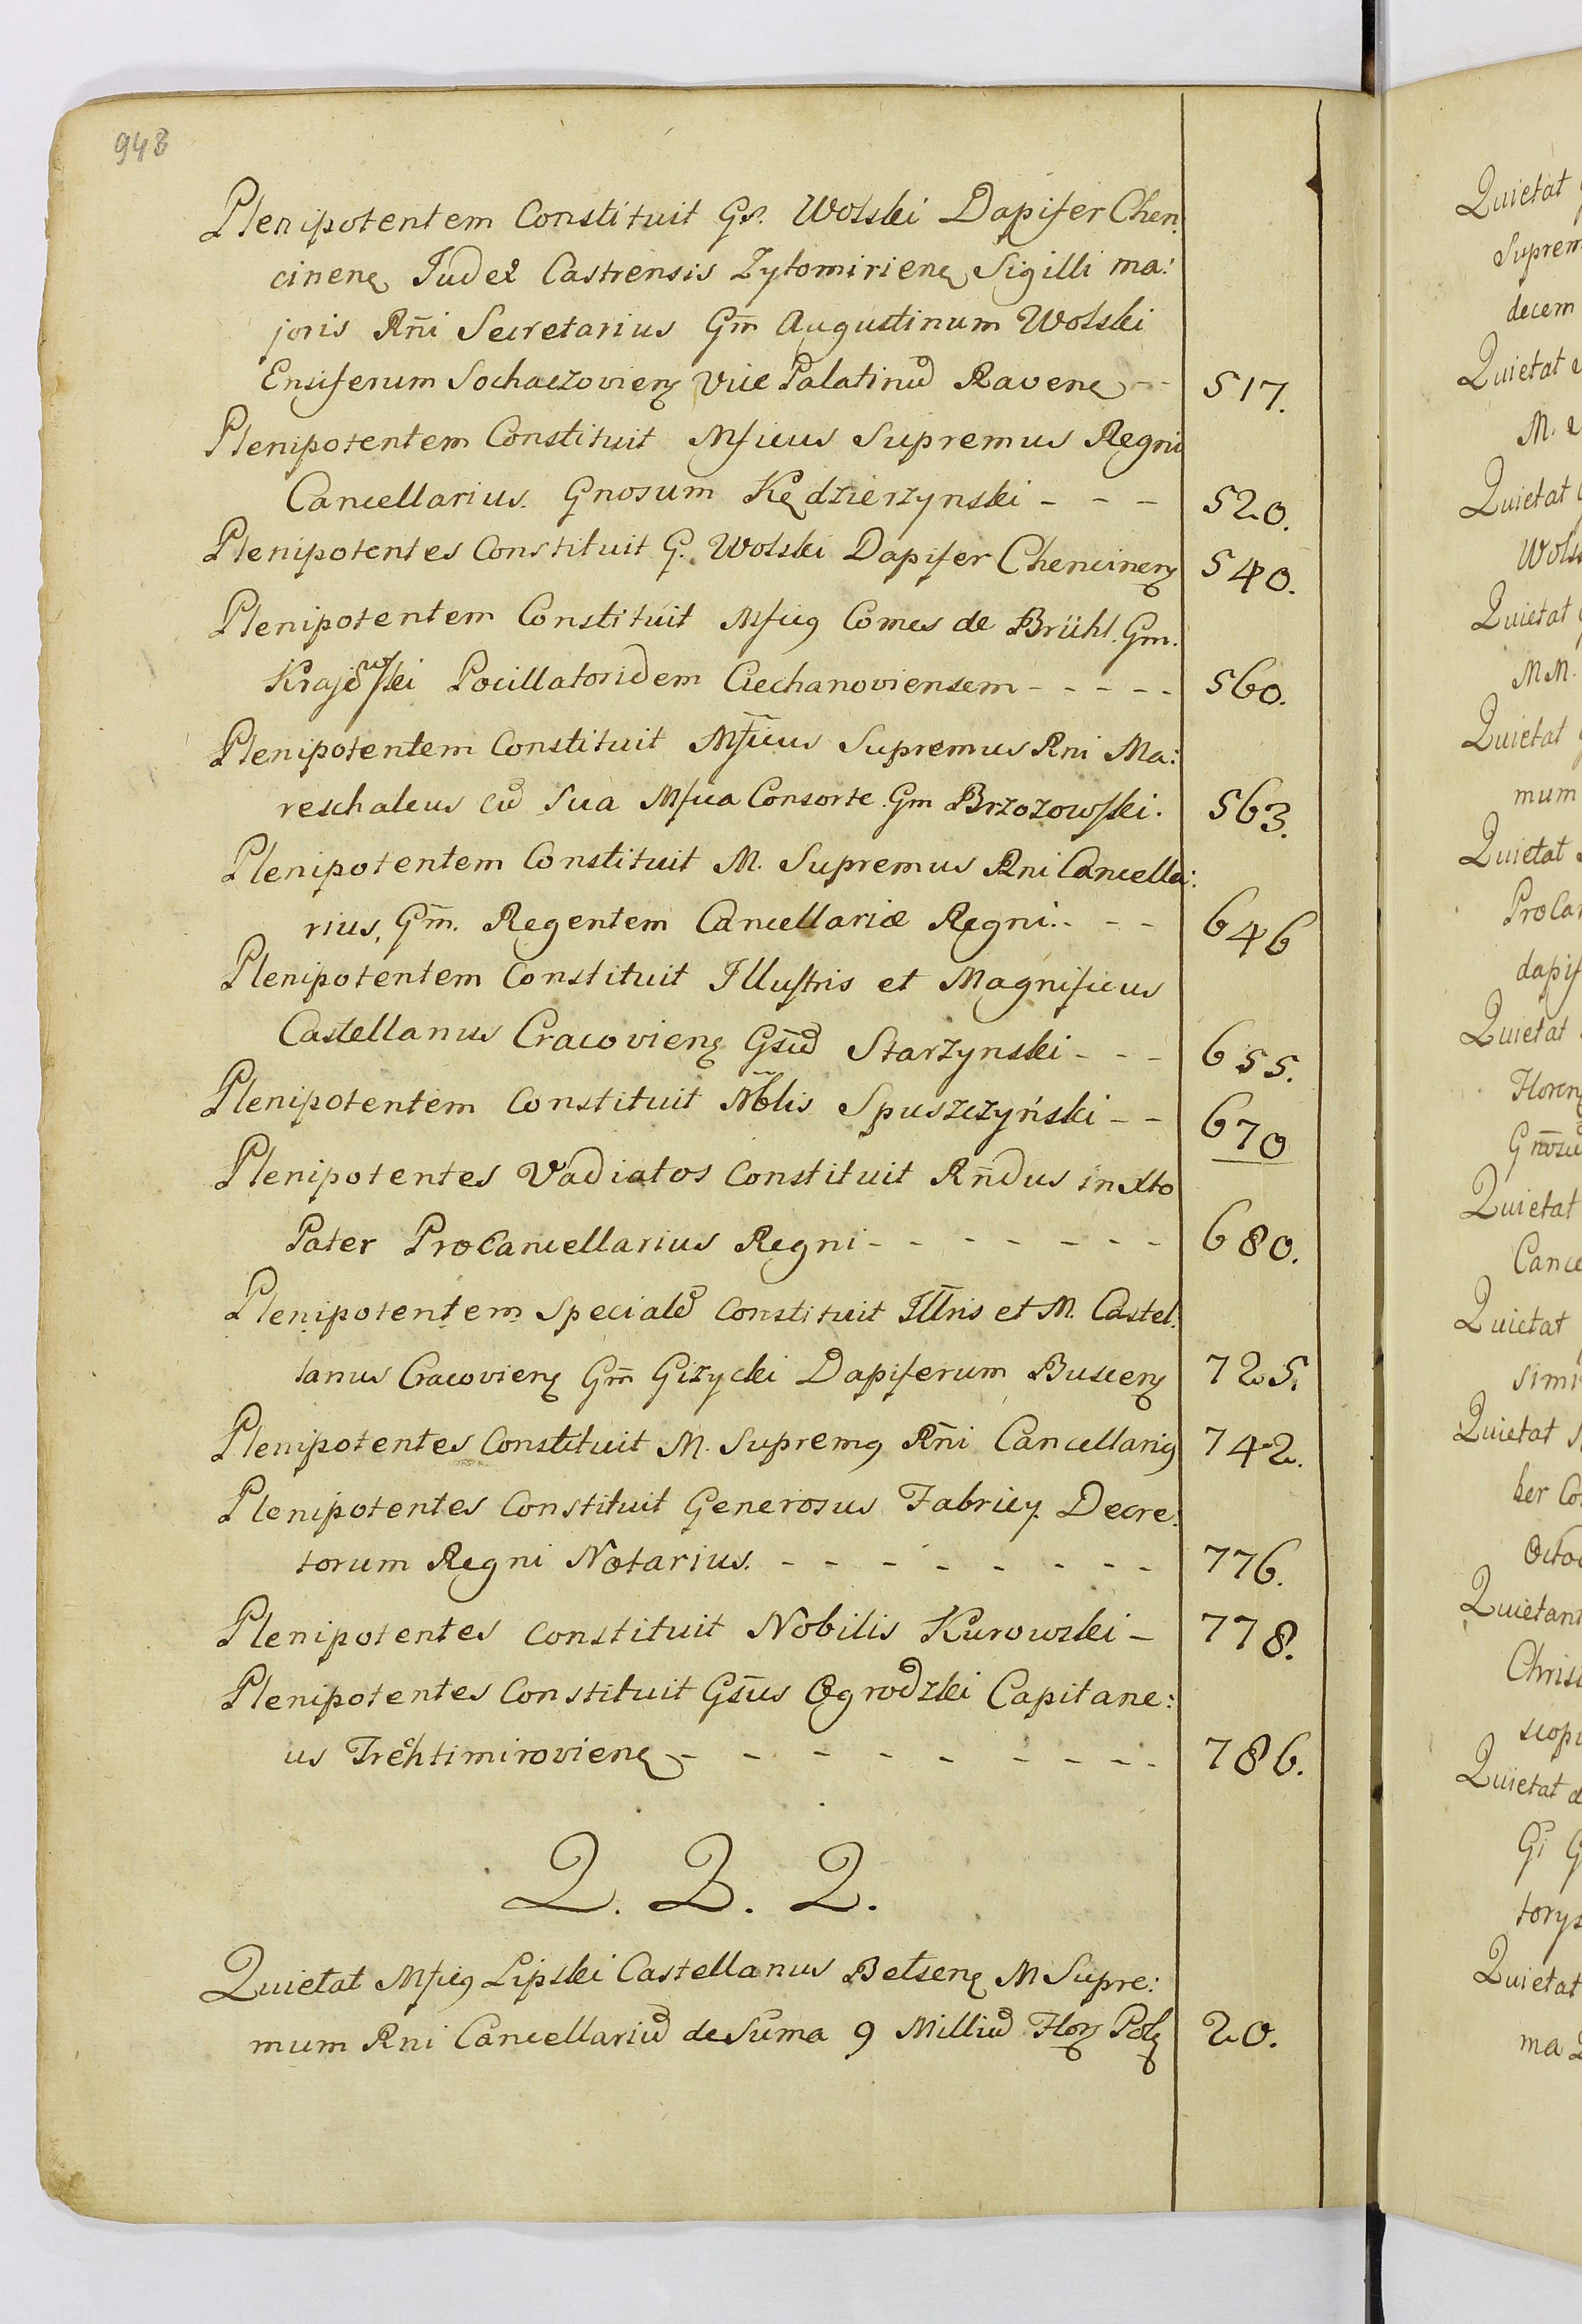 948
Plenipotentem Constituit Gs. Wolski Dapifer Chen:
cinens Judex Castrensis Zytomiriens Sigilli ma:
joris Rn̄i Secretarius Gm̄ Augustinum Wolski
Ensiferum Sochaczoviens Vice Palatinū Ravens -- 517.
Plenipotentem Constituit Mficus Supremus Regni
Cancellarius. Gnosum Kędzierzynski - - - 520.
Plenipotentes Constituit G. Wolski Dapifer Chencinens 540.
Plenipotentem Constituit Mficus Comes de Brühl. Gm.
Krajewski Pocillatoridem Ciechanoviensem - - - - - 560.
Plenipotentem Constituit Mf̄icus Supremus Rni Ma:
reschalcus cū Sua Mfica Consorte. Gm Brzozowski. 563.
Plenipotentem Constituit M. Supremus Rni Cancella:
rius, Gm̄. Regentem Cancellariæ Regni. - - - 646
Plenipotentem Constituit Illustris et Magnificus
Castellanus Cracoviens Gsū Starzynski - - - 655.
Plenipotentem Constituit Nb̄lis Spuszczyński - - 670
Plenipotentes Vadiatos Constituit Rn̄dus in Xto
Pater ProCancellarius Regni - - - - - - - 680.
Plenipotentem Specialē Constituit Ill̄ris et M. Castel:
lanus Cracoviens Gm̄ Gizycki Dapiferum Buscens 725.
Plenipotentes Constituit M. Supremus Rn̄i Cancellarius 742.
Plenipotentes Constituit Generosus Fabricy. Decre:
torum Regni Notarius. - - - - - - - - 776.
Plenipotentes Constituit Nobilis Kurowski - 778.
Plenipotentes Constituit Gs̄us Ogrodzki Capitane:
us Trehtimiroviens - - - - - - - - 786.
Q. Q. Q.
Quietat Mficus Lipski Castellanus Belsens M Supre:
mum Rni Cancellariū de Sum̄a 9 Milliū Flors Pols 20.
Quietat
Suprem
decem
Quietat
M.
Quietat
Wols
Quietat
MM.
Quietat
mum
Quietat
ProCan
dapif
Quietat
Florens
Gnosū
Quietat
Cance
Quietat
simi
Quietat
ber Co
Octo
Quietant
Chris
scopi
Quietat
Gi G
torys
Quietat
ma